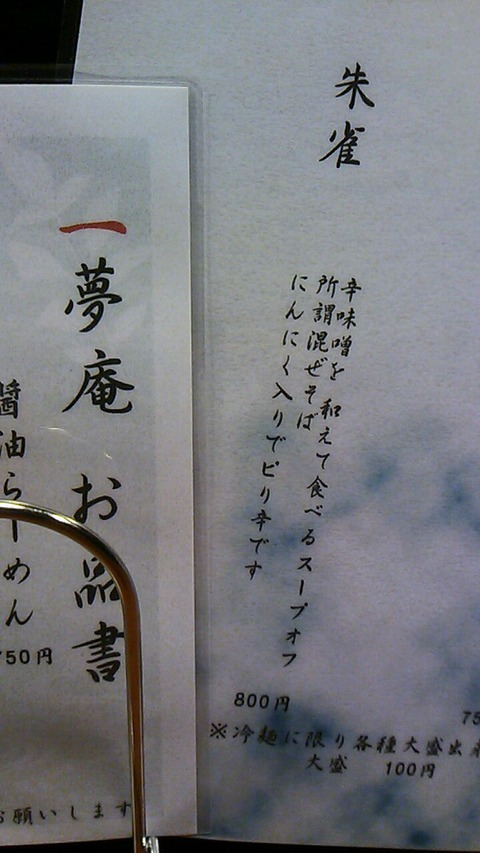 朱雀
辛味噌を 和えて食べるスープオフ
所謂混ぜそば
にんにく入りでピリ辛です
800円
75
※冷麺に限り各種大盛出来
大盛 100円
一夢庵 お品書
醤油らーめん
750円
お願いします